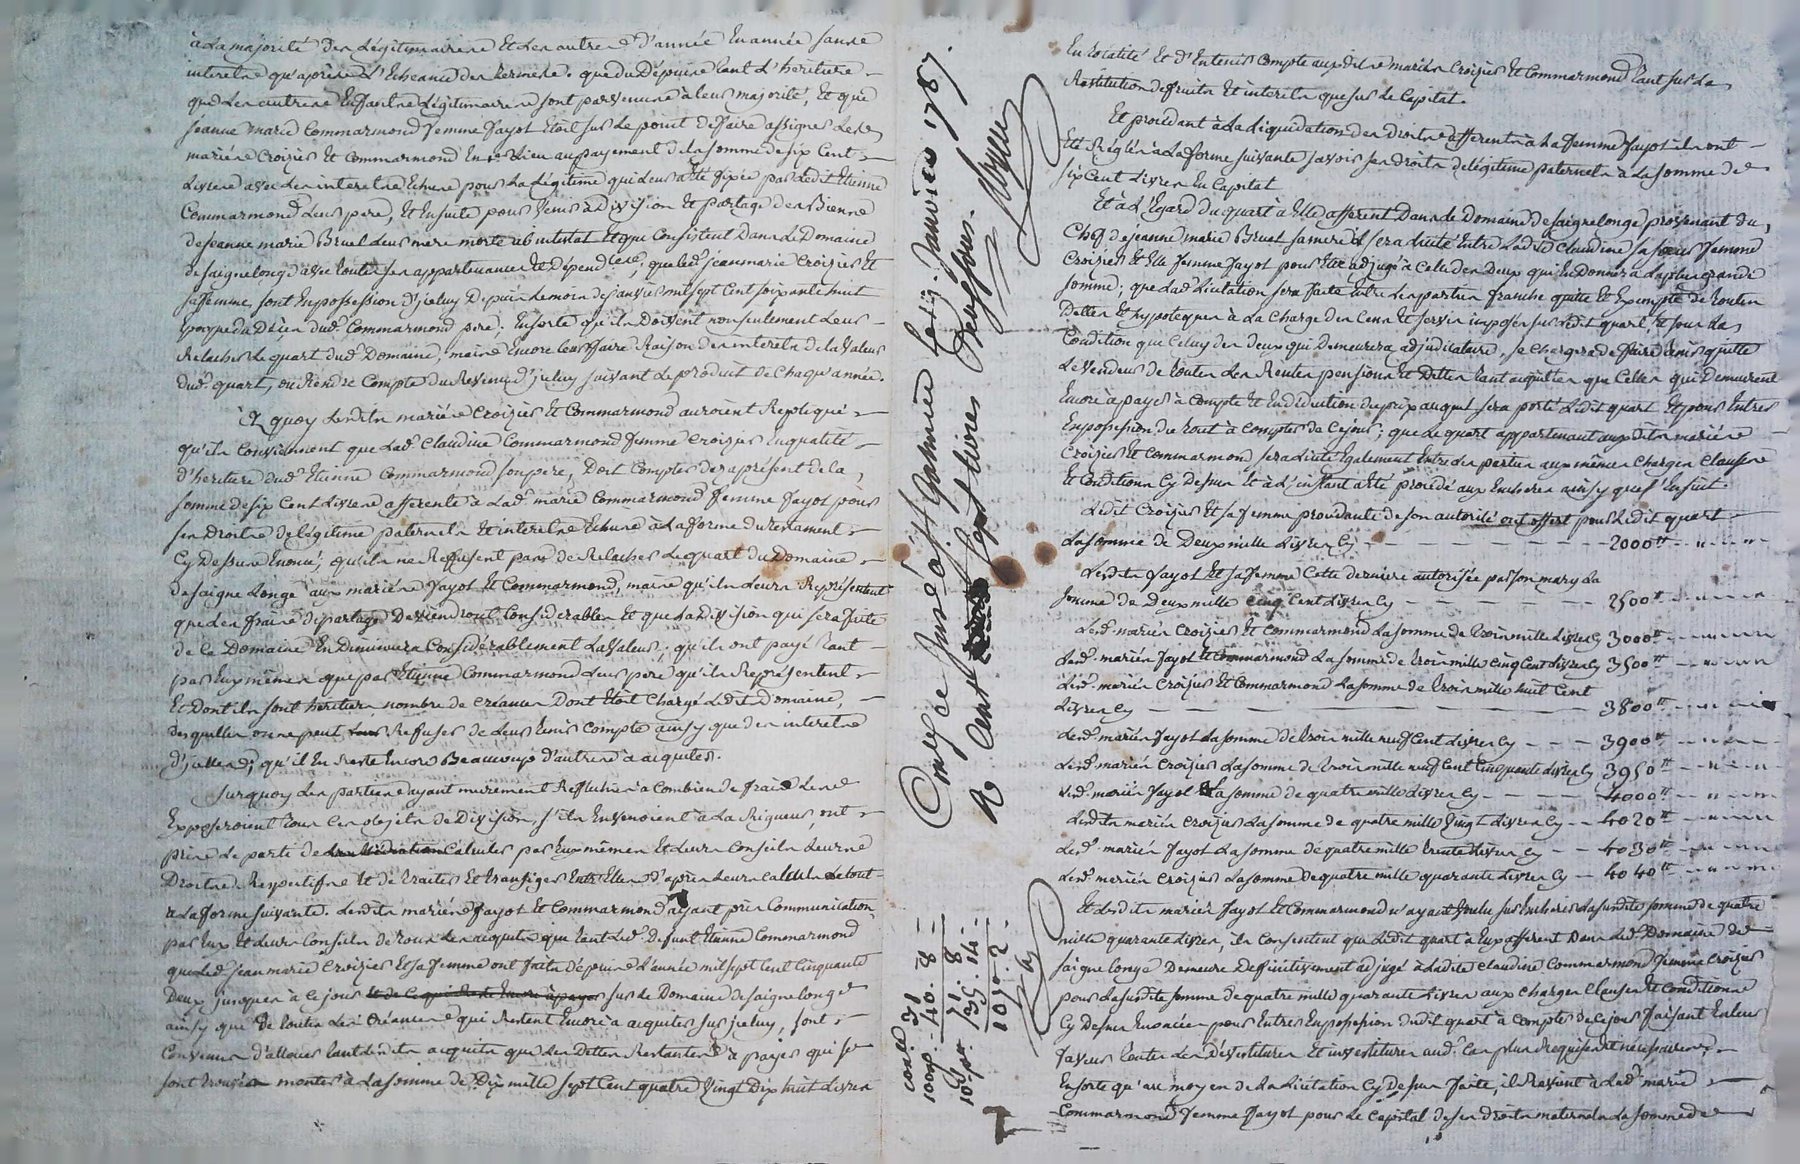 à la majorité des légitimaires Et les autres d'année En année sans
interets qu'après L'Echeance des termes. que du Depuis tant L'héritiere
que les autres Enfants légitimaires sont parvenus à leur majorité, Et que
jeanne marie Commarmond femme fayot Etoit sur le point de faire assigner les
mariés Croizier Et Commarmond au payement de la somme de six Cent
Livres avec les interets Echus pour la légitime qui leur a été fixée par ledit Etienne
Commarmond leur pere, Et Ensuite pour venir à division Et partage des Biens
de jeanne marie Bruel leur mere morte ab intestat Et qui Consistent Dans le Domaine
de saignelonge avec toutes ses appartenances Et Dépendces, que led. jean marie Croizier Et
sa femme, sont En possession d'iceluy Depuis le mois de janvier mil sept Cent soixante huit
Epoque du Décès dud. Commarmond pere, Ensorte qu'ils Doivent non seulement leur
Relacher le quart dud. Domaine, mais Encore leur faire Raison des interets de la valeur
dud. quart, ou Rendre Compte du Revenu d'iceluy suivant le produit de Chaqu'année.
à quoy lesdits mariés Croizier Et Commarmond auroient Repliqué
qu'ils Conviennent que lad. Claudine Commarmond femme Croizier En qualité
d'héritiere dud. Etienne Commarmond son pere, Doit Compter dès aprésent de la
somme de six Cent Livres afferente à lad. marie Commarmond femme fayot pour
ses Droits de légitime paternels Et interets Echus à la forme du testament
Cy Dessus Enoncé; qu'ils ne Reffusent pas de Relacher le quart du Domaine
de saigne Longe aux mariés fayot Et Commarmond, mais qu'ils leurs Représentent
que les frais de partage Deviendront Considerables Et que la division qui sera faite
de Ce Domaine En Diminuera Considérablement la valeur; qu'ils ont payé tant
par Eux mêmes que par Etienne Commarmond leur pere qu'ils Représentent
Et Dont ils sont heritiers nombre de créances Dont Etoit Chargé ledit Domaine,
desquelles on ne peut Refuser de leur tenir Compte ainsy que des interets
d'jcelles; qu'il En Reste Encore Beaucoup d'autres à acquiter.
Surquoy les parties ayant murement Refléchies à Combien de frais les
Exposeroient tous Ces objets de Division, s'ils En venoient à la Rigueur, ont
pris le parti de Calculer par Eux mêmes Et leurs Conseils leurs
Droits Respectifs Et de traiter Et transiger Entr'Elles d'après leurs Calculs le tout
a la forme suivante. lesdits mariés fayot Et Commarmond ayant pris Communication
par Eux Et leurs Conseils de tous les acquits que tant led. Defunt Etienne Commarmond
que led. jean marie Croizier Et sa femme ont faits depuis l'année mil sept Cent Cinquante
Deux jusques à Ce jour sur le Domaine de saignelonge
ainsy que de toutes les Créances qui Restent Encore à acquiter sur jceluy, sont
Convenus d'allouer tant lesdits acquits que les Dettes Restantes à payer qui se
sont trouvés monter à la somme de Dix mille sept Cent quatre vingt Dix huit Livres
Treize janvier 1787.
Cent sept livres
40. 8
1057. 2
En totalité Et d'Entenir Compte auxdits mariés Croizier Et Commarmond tant sur la
Restitution de fruits Et interets que sur le Capital.
Et procédant à la liquidation des Droits afferents à la femme fayot ils ont
Eté Réglés à la forme suivante savoir ses droits de légitime paternels à la somme de
six Cent Livres En Capital
Et à L'Egard du quart à Elle afferent Dans le Domaine de saignelonge provenant du
Chef de jeanne marie Bruel sa mere il sera licité Entre ladite Claudine sa sœur femme
Croizier Et Elle femme fayot pour Etre adjugé à Celle des Deux qui En Donnera la plus grande
somme; que lad. licitation sera faite Entre les parties franche quitte Et Exempte de toutes
Dettes Et hypoteques à la Charge des Cens Et servis imposés sur ledit quart, Et sous la
Condition que Celuy des deux qui Demeurera adjudicataire, se Chargera de faire tenir quitte
le vendeur de toutes les Rentes pensions Et Dettes tant acquitées que Celles qui Demeurent
Encore à payer à Compte Et En déduction du prix auquel sera porté ledit quart Et pour Entrer
En possession du tout à Compter de Ce jour; que le quart appartenant auxdits mariés
Croizier Et Commarmond sera licité Egalement Entre les parties aux mêmes Charges Clauses
Et Conditions Cy Dessus Et à L'instant a été procédé aux Encheres ainsy que s'Ensuit.
Ledit Croizier Et sa femme procédante de son autorité ont offert pour ledit quart
La somme de Deux mille Livres Cy 2000 ₶
Lesdits fayot Et sa femme Cette derniere autorisée par son mary la
somme de Deux mille Cinq Cent Livres Cy 2500 ₶
Lesd. mariés Croizier Et Commarmond la somme de trois mille livres Cy 3000 ₶
Lesd. mariés fayot Et Commarmond la somme de trois mille Cinq Cent Livres Cy 3500 ₶
Lesd. mariés Croizier Et Commarmond la somme de trois mille huit Cent
Livres Cy 3800 ₶
Lesd. mariés fayot la somme de trois mille neuf Cent Livres Cy 3900 ₶
Lesd. mariés Croizier la somme de trois mille neuf Cent Cinquante Livres Cy 3950 ₶
Lesd. mariés fayot la somme de quatre mille Livres Cy 4000 ₶
Lesdits mariés Croizier la somme de quatre mille vingt Livres Cy 4020 ₶
Lesd. mariés fayot la somme de quatre mille trente Livres Cy 4030 ₶
Lesd. mariés Croizier la somme de quatre mille quarante Livres Cy 4040 ₶
Et lesdits mariés fayot Et Commarmond n'ayant voulu surEncherir la susdite somme de quatre
mille quarante Livres, ils Consentent que ledit quart à Eux afferent Dans led. Domaine de
saigne longe Demeure Deffinitivement adjugé à ladite Claudine Commarmond femme Croizier
pour la susdite somme de quatre mille quarante Livres aux Charges Clauses Et Conditions
Cy Dessus Enoncées pour Entrer En possession dudit quart à Compter de Ce jour faisant En leur
faveur toutes les Dévestitures Et investitures aud. Cas plus Requises Et necessaires;
Ensorte qu'au moyen de la licitation Cy Dessus faite, il Revient à lad. marie
Commarmond femme fayot pour le Capital de ses Droits maternels la somme de